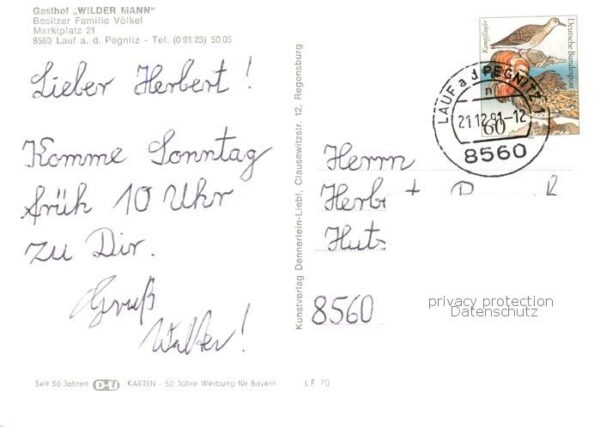 Gasthof „WILDER MANN"
Besitzer Familie Völkel
Marktplatz 21
8560 Lauf a. d. Pegnitz - Tel. (0 91 23) 50 05
Lieber Herbert!
Komme Sonntag
früh 10 Uhr
zu Dir.
Gruß
Walter!
Seit 50 Jahren KARTEN - 50 Jahre Werbung für Bayern LF 70
Kunstverlag Dennerlein-Liebl, Clausewitzstr. 12, Regensburg
Kampfläufer
Deutsche Bundespost
60
LAUF a d PEGNITZ 1
n
21.12.91-12
8560
Herrn
D R
8560
privacy protection
Datenschutz